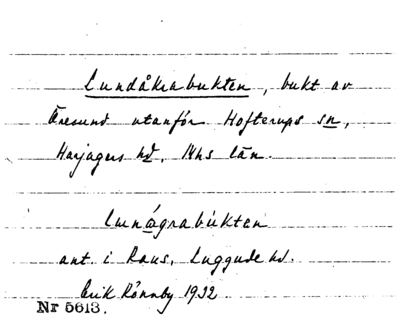 Lundåkrabukten, bukt av
Öresund utanför Hofterups sn,
Harjagers hd, Mhs län.
Lunågrabúktan
ant. i Raus, Luggude hd.
Erik Rönnby 1932
Nr 5613.